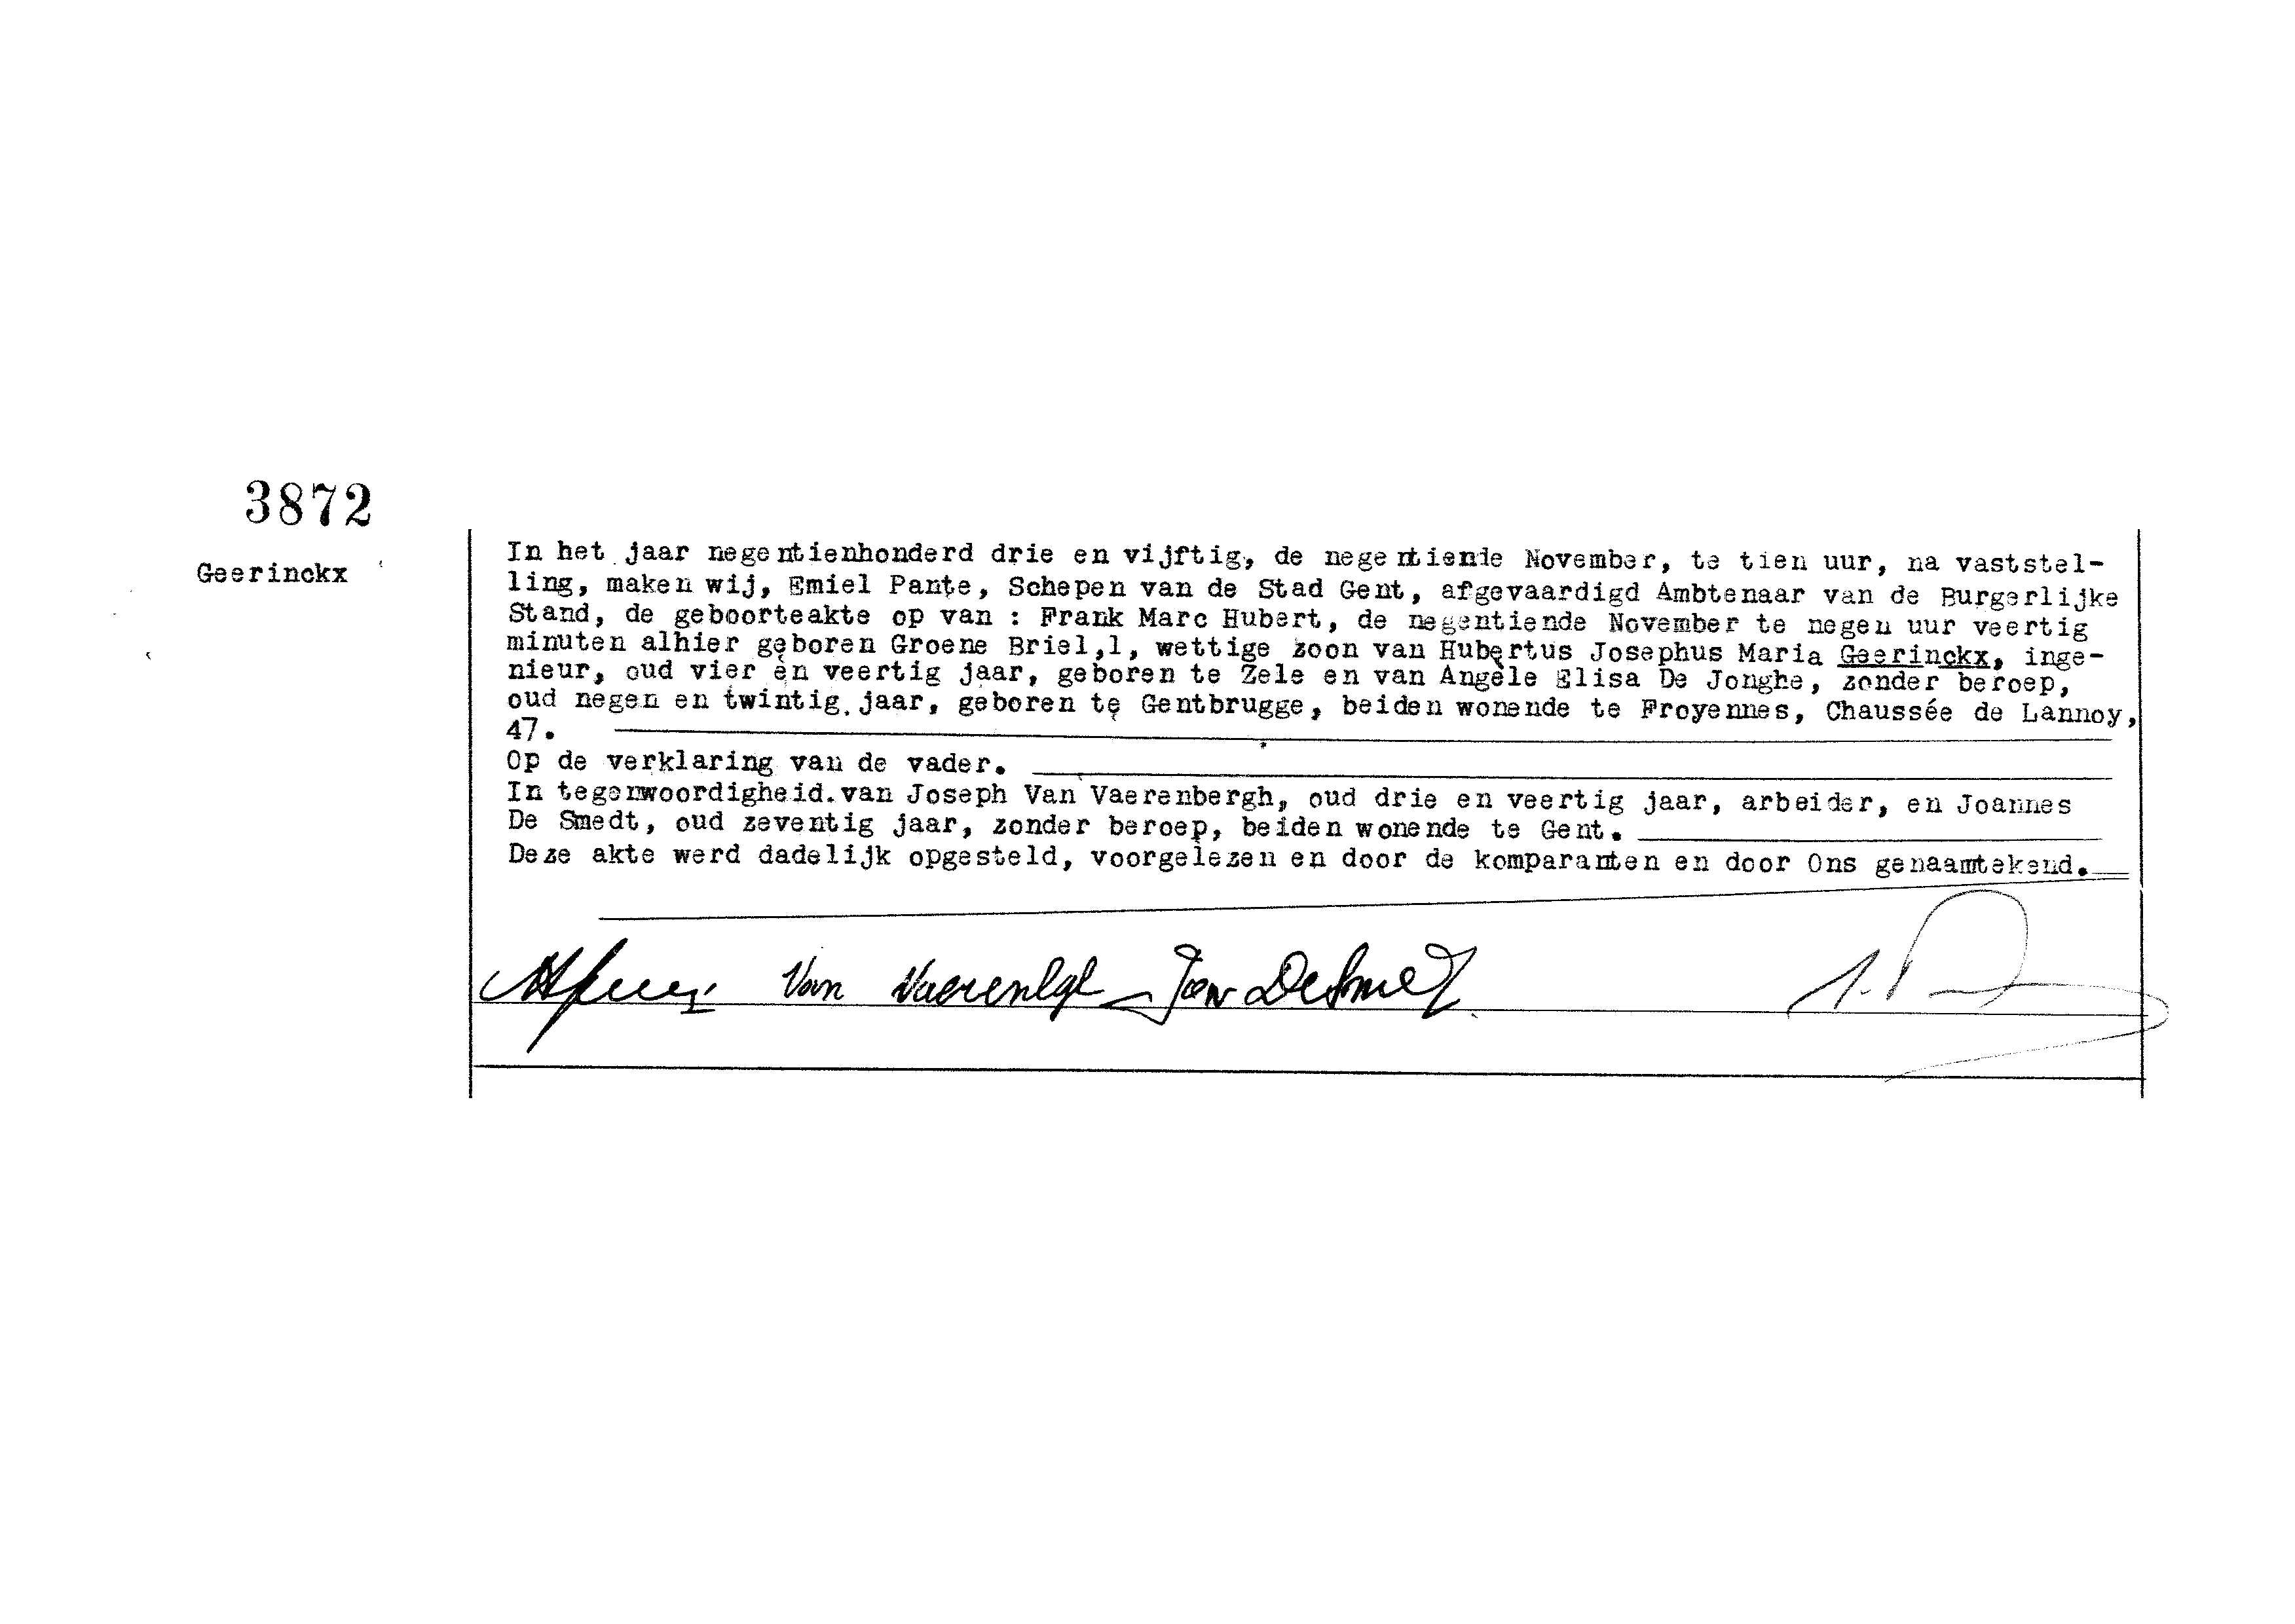 3872
Geerinckx
In het jaar negentienhonderd drie en vijftig, de negentiende November, te tien uur, na vaststel-
ling, maken wij, Emiel Pante, Schepen van de Stad Gent, afgevaardigd Ambtenaar van de Burgerlijke
Stand, de geboorteakte op van : Frank Marc Hubert, de negentiende November te negen uur veertig
minuten alhier geboren Groene Briel,1, wettige zoon van Hubertus Josephus Maria Geerinckx, inge-
nieur, oud vier en veertig jaar, geboren te Zele en van Angèle Elisa De Jonghe, zonder beroep,
oud negen en twintig jaar, geboren te Gentbrugge, beiden wonende te Froyennes, Chaussée de Lannoy,
47.
Op de verklaring van de vader.
In tegenwoordigheid van Joseph Van Vaerenbergh, oud drie en veertig jaar, arbeider, en Joannes
De Smedt, oud zeventig jaar, zonder beroep, beiden wonende te Gent.
Deze akte werd dadelijk opgesteld, voorgelezen en door de komparanten en door Ons genaamtekend.
Van